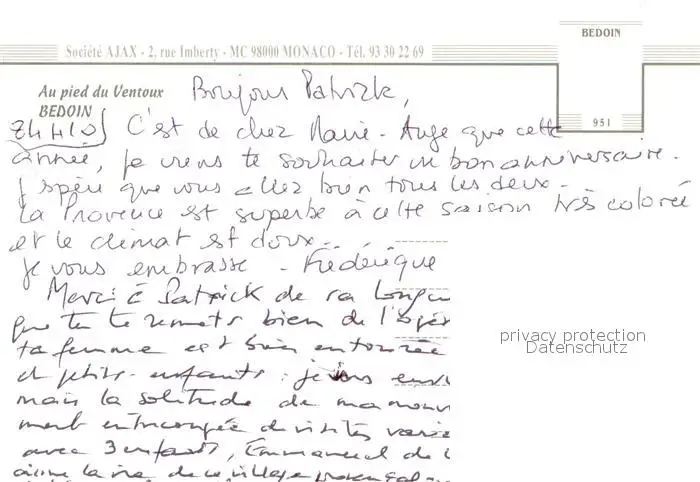 BEDOIN
Société AJAX - 2, rue Imberty - MC 98000 MONACO - Tél. 93 30 22 69
Au pied du Ventoux
BEDOIN
951
Bonjour Patrick,
C'est de chez Marie-Ange que cette
année, je viens te souhaiter un bon anniversaire.
J'espère que vous allez bien tous les deux.
La Provence est superbe à cette saison très colorée
et le climat est doux...
je vous embrasse. Frédérique
Merci à Patrick de sa longu
que tu te remets bien de l'opér
ta femme est bien entourée
et petits-enfants : je
mais la solitude de ma
ment entrecoupée de visites
avec 3 enfants, Emmanuel de
la vie de ce village provençal
privacy protection
Datenschutz